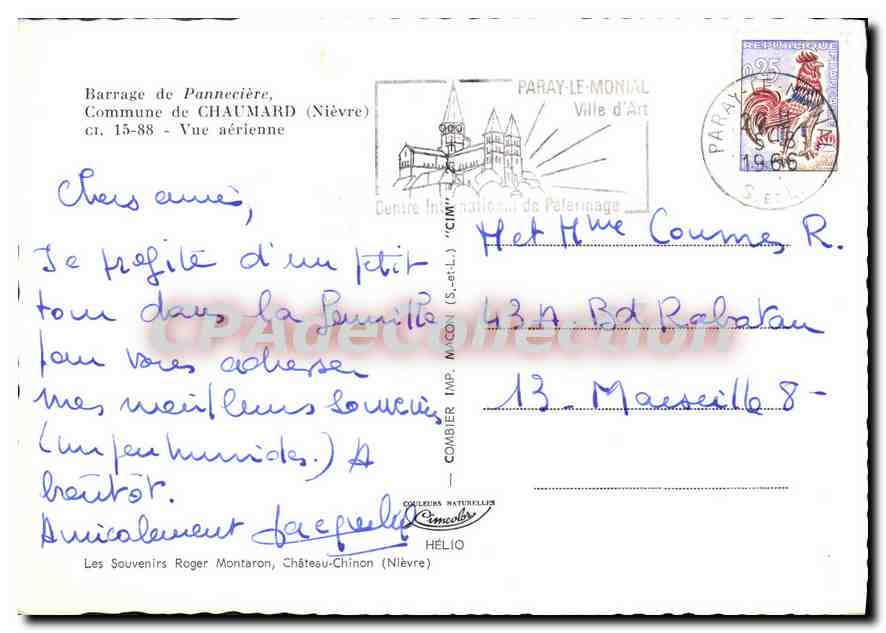 Barrage de Pannecière,
Commune de CHAUMARD (Nièvre)
CI. 15-88 - Vue aérienne
PARAY-LE-MONIAL
Ville d'Art
Centre International de Pèlerinage
REPUBLIQUE
0,25
PARAY-LE-M
1966
S. ET L.
Chers amis,
Je profite d'un petit
tour dans la famille
pour vous adresser
mes meilleurs souvenirs
(un peu humides.) A
bientôt.
Amicalement Jacqueline
M et Mme Coumes R.
43A Bd Rabatau
13 - Marseille 8 -
CPAdeCollection
COMBIER IMP. MACON (S.-et-L.) "CIM"
COULEURS NATURELLES
Cimcolor
HÉLIO
Les Souvenirs Roger Montaron, Château-Chinon (Nièvre)